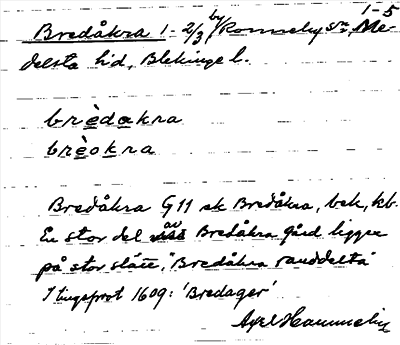 1-5
Bredåkra 1-2/3 by Ronneby sn, Me-
delsta hd, Blekinge l.
brèdakra
brèokra
Bredåkra G11 sk Bredåkra, bek, kb.
En stor del av Bredåkra gård ligger
på stor slätt, "Bredåkra randdelta"
I tingsprot 1609: 'Bredager'
Axel